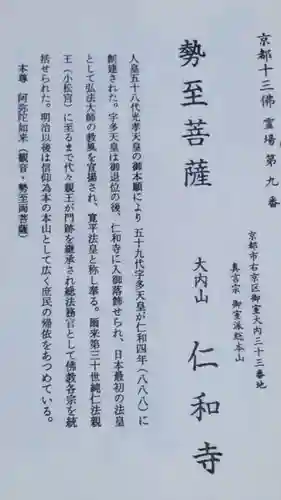 京都十三佛霊場第九番
京都市右京区御室大内三十三番地
真言宗 御室派総本山
勢至菩薩 大内山 仁和寺
人皇五十八代光孝天皇の御本願により 五十九代宇多天皇が仁和四年(八八八)に
創建された。宇多天皇は御退位の後、仁和寺に入御落飾せられ、日本最初の法皇
として弘法大師の教風を宣揚され、寛平法皇と称し奉る。爾来第三十世純仁法親
王(小松宮)に至るまで代々親王が門跡を継承され総法務官として佛教各宗を統
括せられた。明治以後は信仰為本の本山として広く庶民の帰依をあつめている。
本尊 阿弥陀如来(観音・勢至両菩薩)